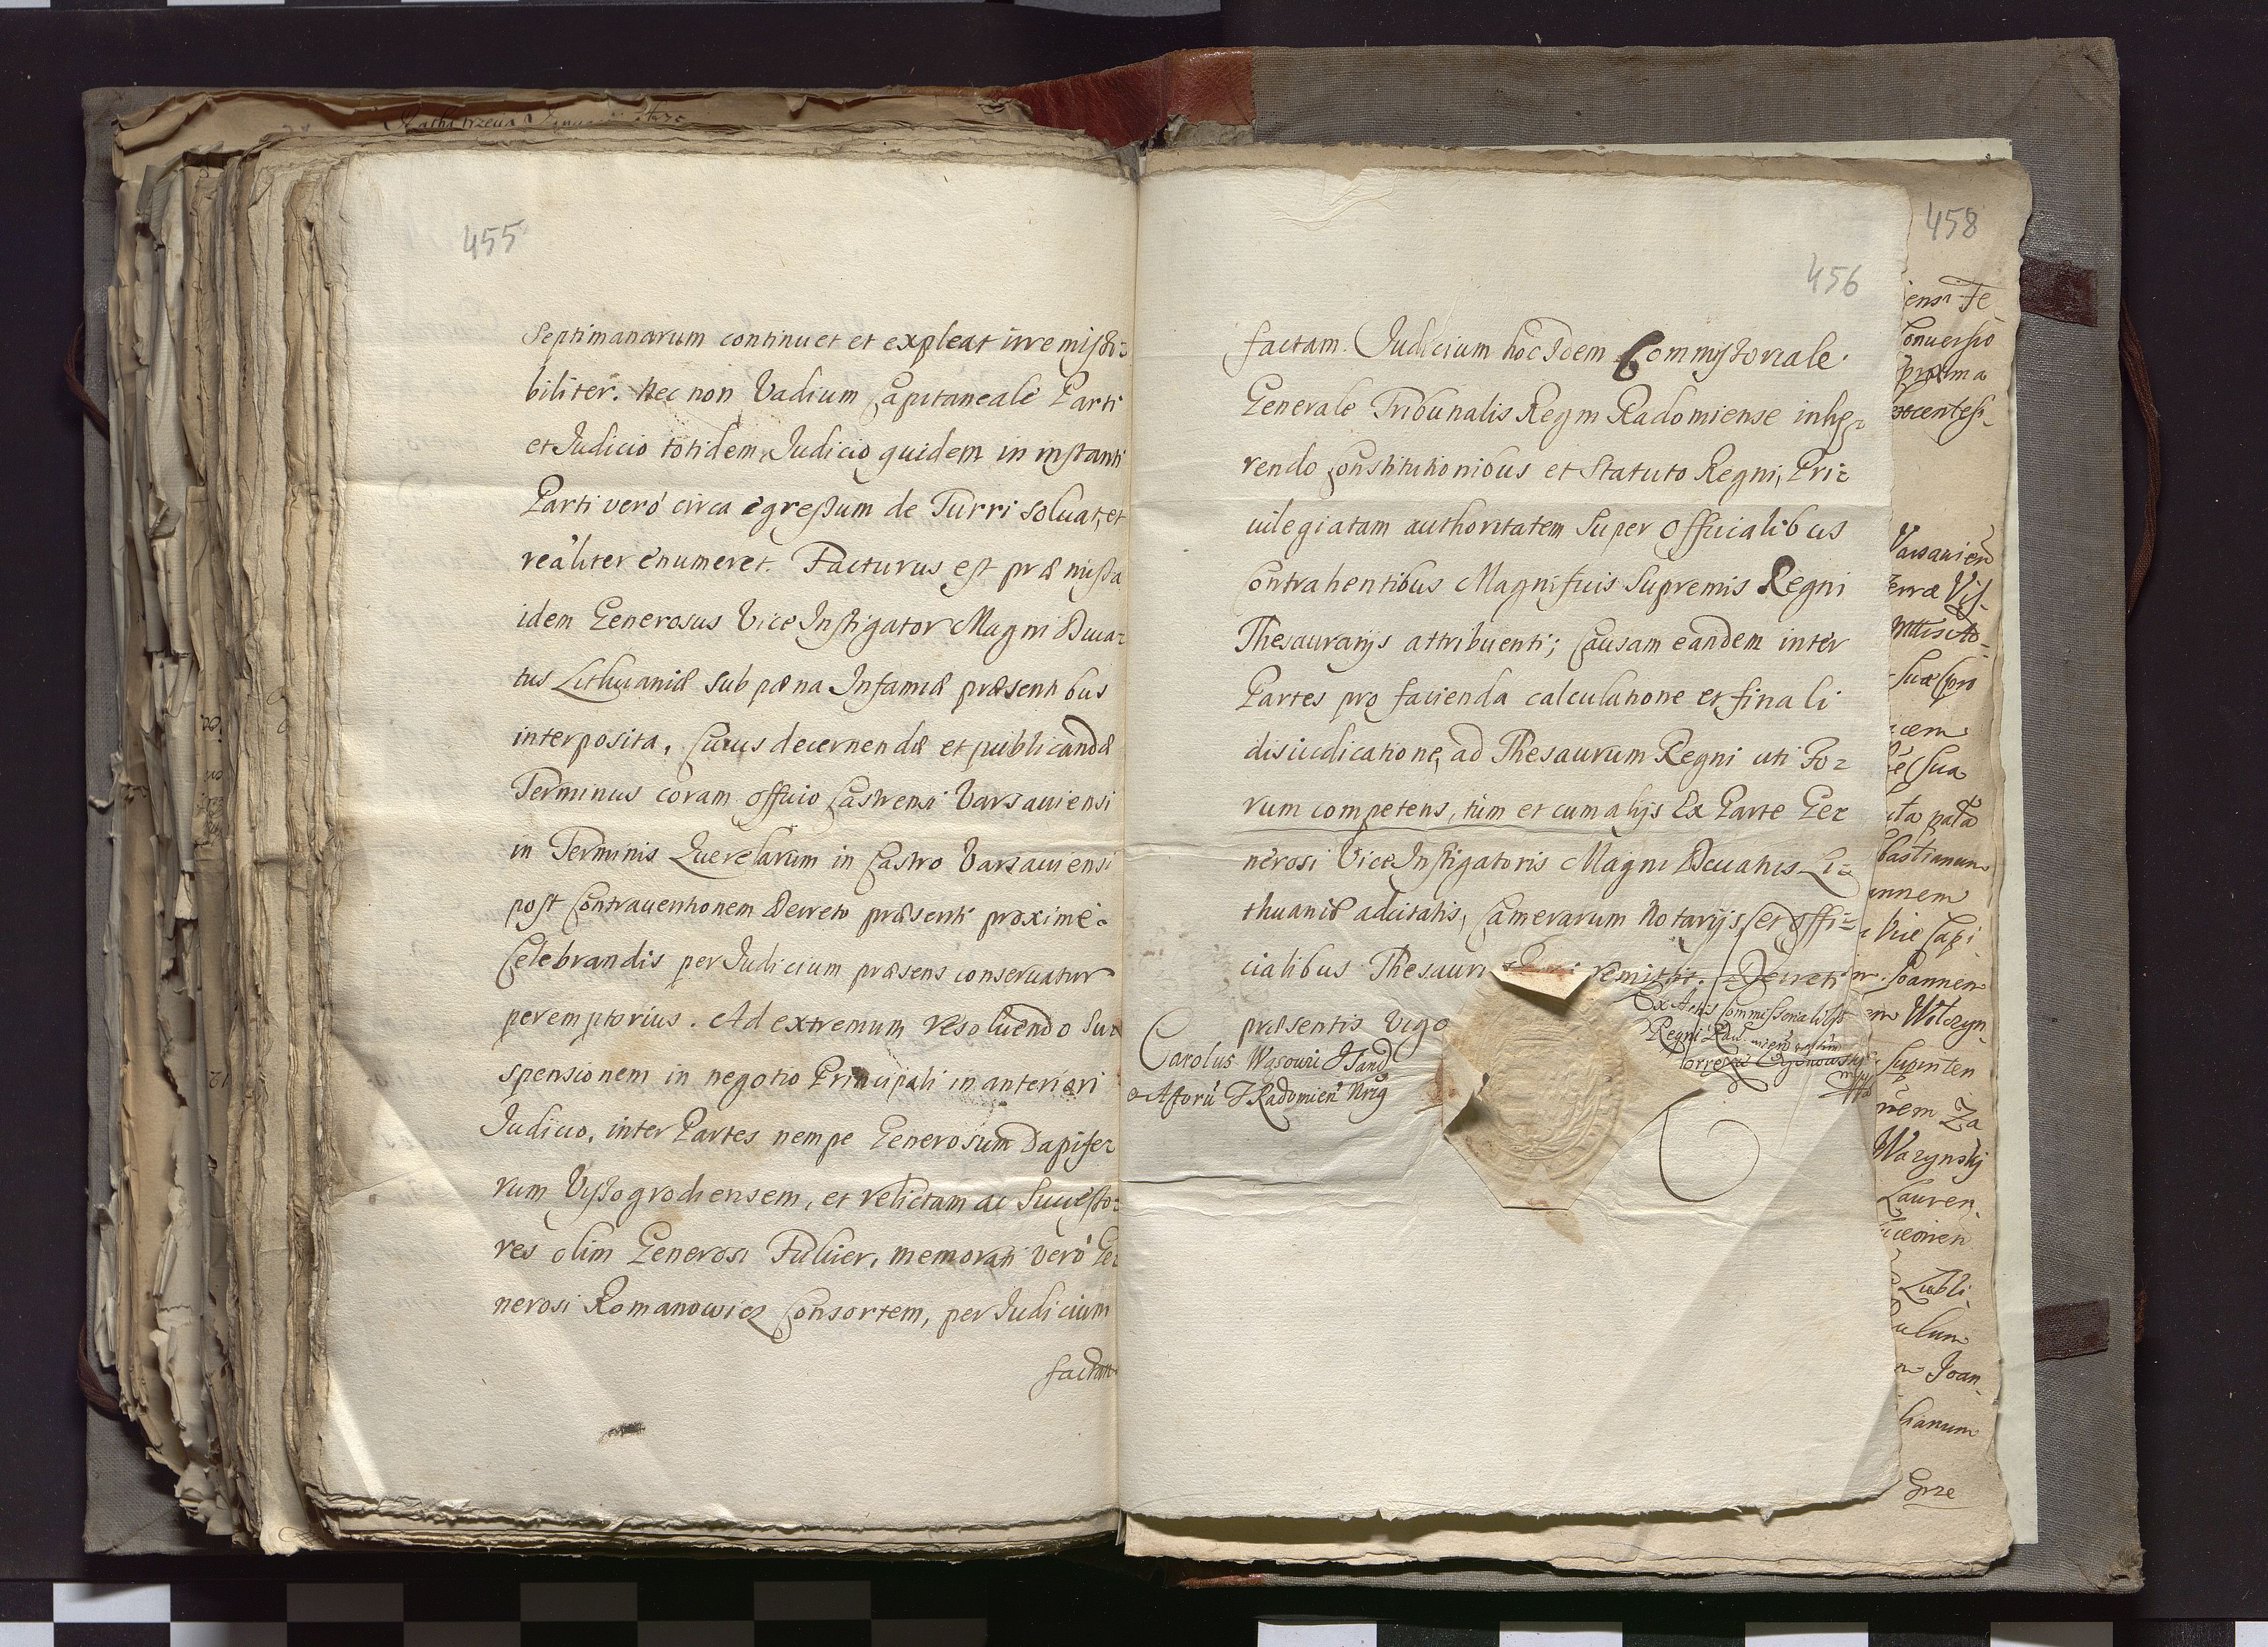 455
Septimanarum continuet et expleat irremissi=
biliter. Nec non Vadium Capitaneale Parti
et Judicio totidem, Judicio quidem in instanti
Parti verò circa egressum de Turri soluat, et
reàliter enumeret. Facturus est præmissa
idem Generosus Vice Instigator Magni Ducа=
tus Lithuaniæ sub pæna Infamiæ præsentibus
interposita, Cuius decernendæ et publicandæ
Terminus coram officio Castrensi Varsauiensi
in Terminis Querelarum in Castro Varsauiensi
post Contrauentionem Decreto præsenti proximè
Celebrandis per Judicium præsens conseruatur
peremptorius. Ad extremum resoluendo Su=
spensionem in negotio Principali in anteriori
Judicio, inter Partes nempe Generosum Dapife=
rum Vyssogrodiensem, et relictam ac Successo=
res olim Generosi Fuluier, memorati verò Ge=
nerosi Romanowicz Consortem, per Judicium
factam
456
factam. Judicium hoc Idem Commissoriale
Generale Tribunalis Regni Radomiense inhæ=
rendo Constitutionibus et Statuto Regni, Pri=
uilegiatam authoritatem super Officialibus
Contrahentibus Magnificis Supremis Regni
Thesaurarijs attribuenti; Causam eandem inter
Partes pro facienda calculatione et finali
disiudicatione, ad Thesaurum Regni uti Fo=
rum competens, tùm et cum alijs Ex Parte Ge=
nerosi Vice Instigatoris Magni Ducatus Li=
thuaniæ adcitatis, Camerarum Notarijs, et Offi=
cialibus Thesauri remittit. Decreti
præsentis vigo
Carolus Wąsowi
Ex Actis Commissorialibus
Regni
Correxit
458
Conuersio
proxima
Varsauien
Terræ Vis
Sua
Bastianum
Vice Capi
Joannem
Wolczyn
Za
Wazynskj
Lauren
Lubli
Joan
Grze